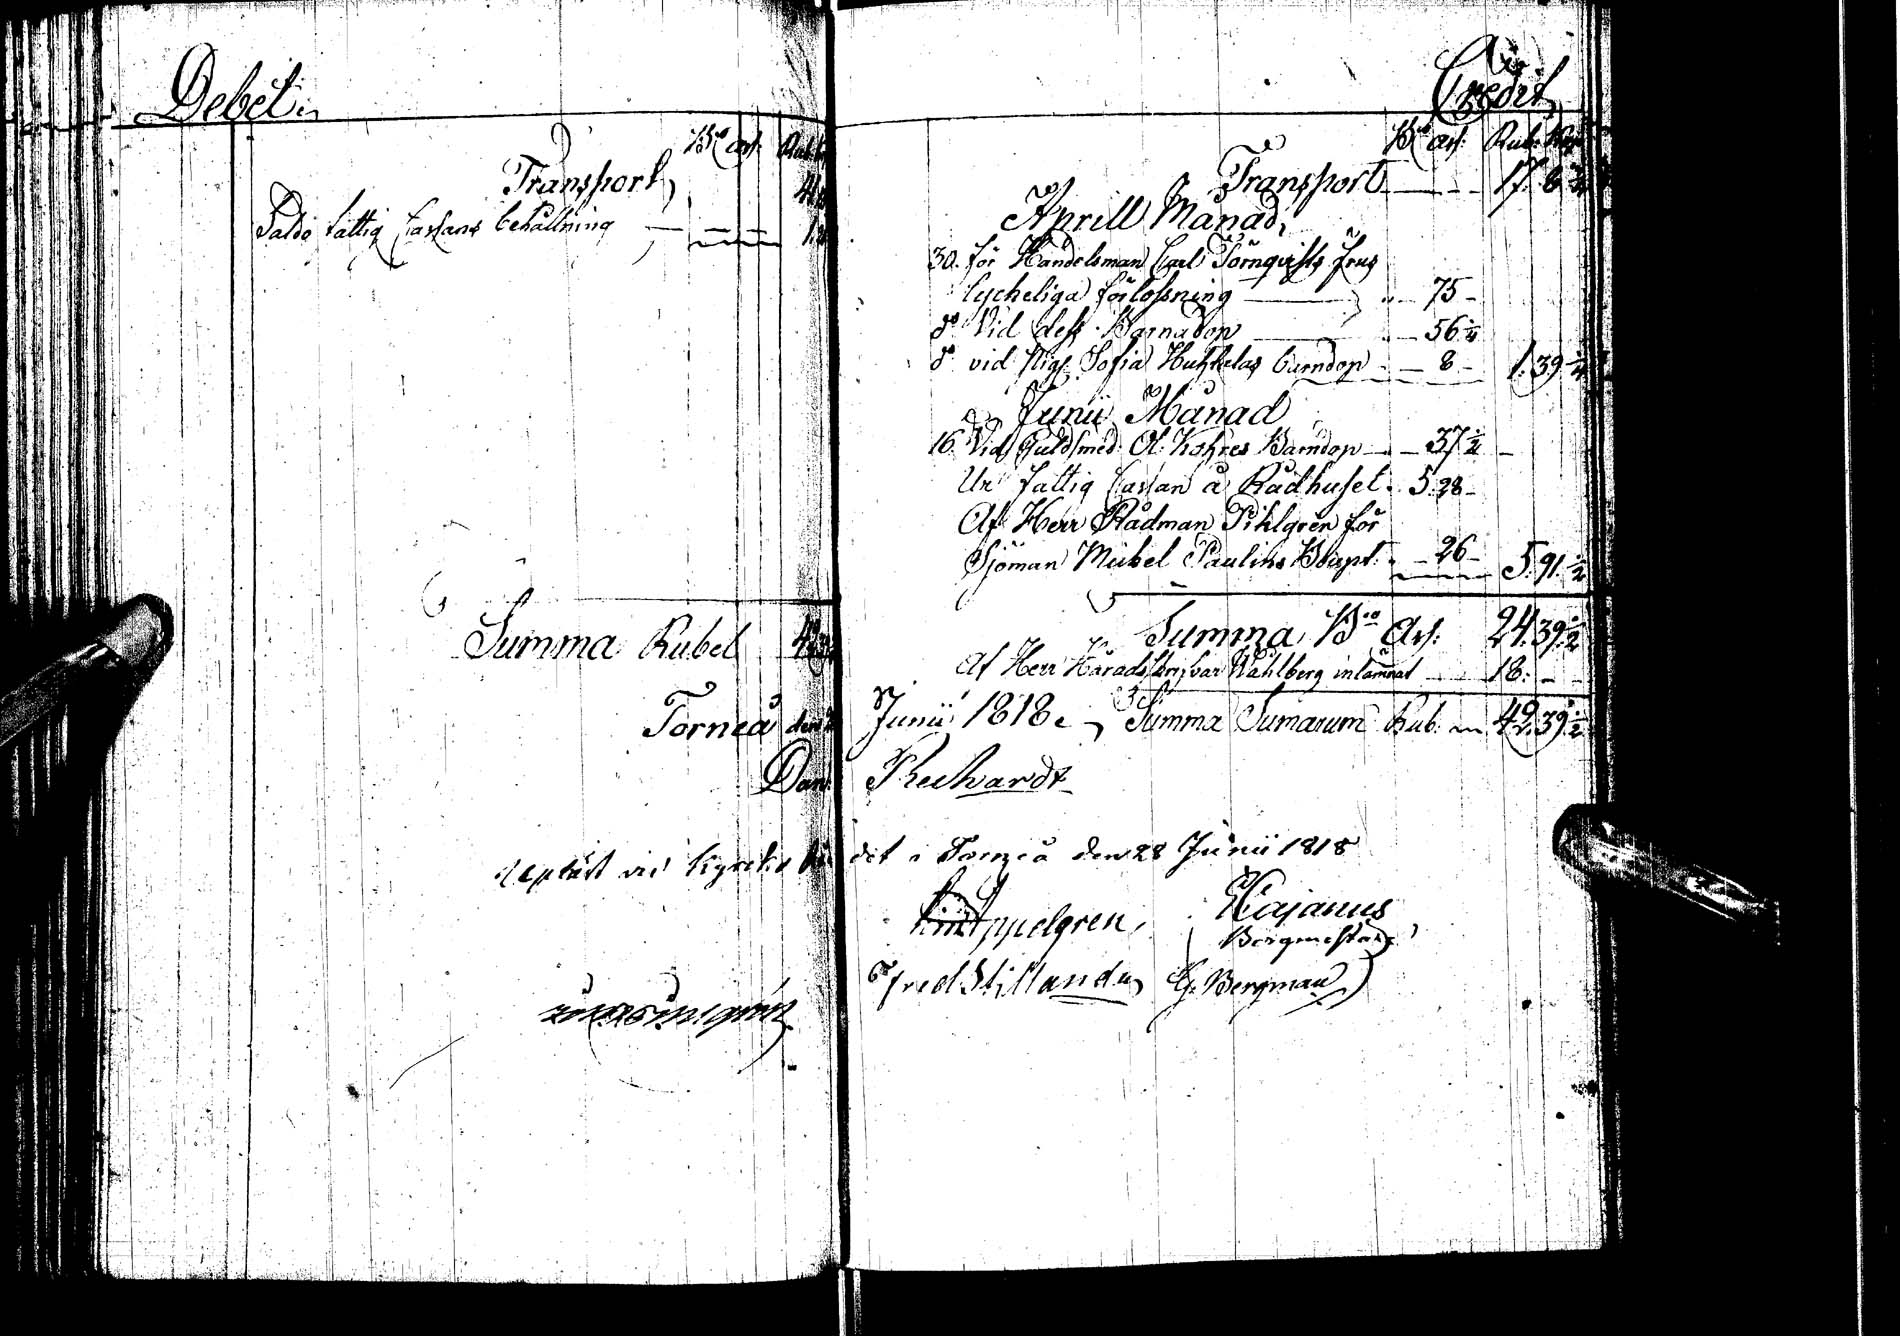 Debet
Bco Ass: Rub:
Transport,
Saldo fattig Cassans behållning
Summa Rubel
Torneå den
Dan:
Upläst vid Kyrko
Credit
Bco Ass: Rub: Kop
Transport 17. 8 3/4
Aprill Månad,
30. för Handelsman Carl Törnqvists frus
lyckeliga förlossning 75
do Vid dess Barnadop 56 1/4
do vid Pig. Sofia Huhtelas barndop 8 1. 39 1/4
Junii Månad
16 Vid Guldsmed Ol: Kohres Barndop 37 1/2
Ur fattig Cassan å Rådhuset 5. 28
Af Herr Rådman Pihlgren för
Sjöman Mickel Paulins 26 5. 91 1/2
Summa Bco Ass: 24. 39 1/2
Af Herr Häradsskrifvar Wahlberg inlämnat 18.
Junii 1818. Summa Sumarum Rub: 42. 39 1/2
Reichardt
det i Torneå den 28 Junii 1818
Appelgren, Kajanus
Borgmästare
Fred Stillander G. Bergman